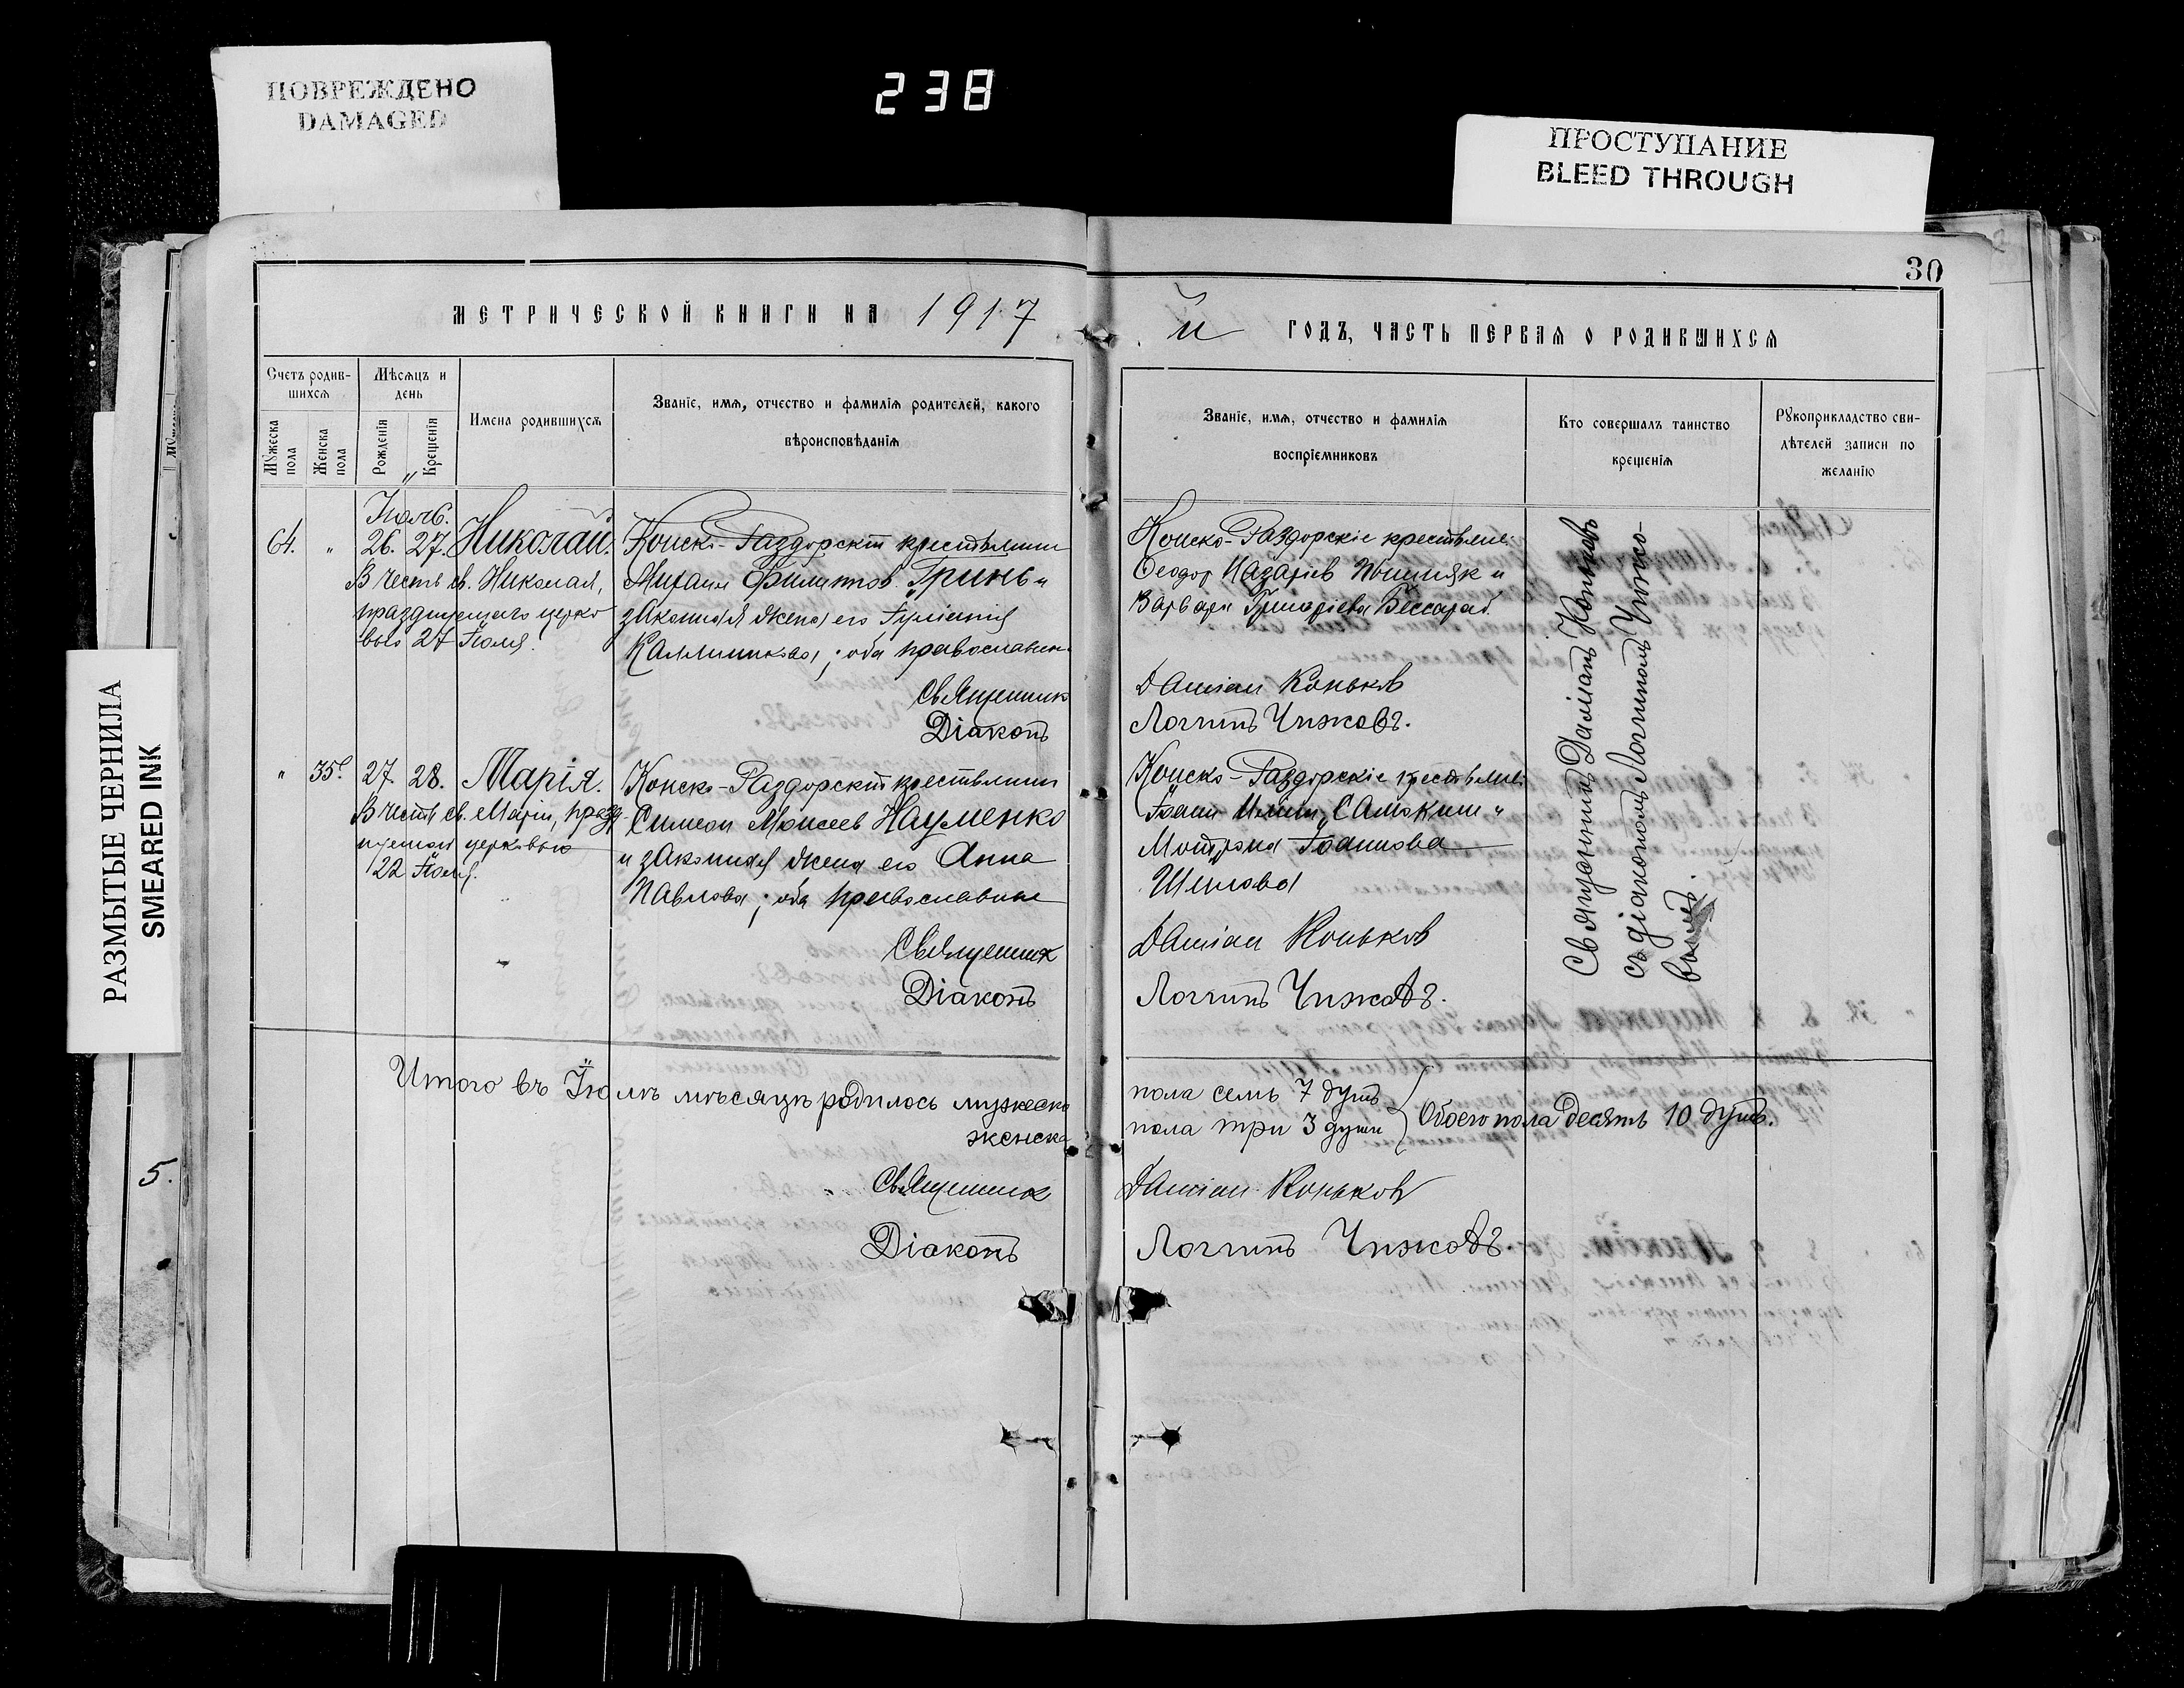 ПОВРЕЖДЕНО
DAMAGED
238
ПРОСТУПАНИЕ
BLEED THROUGH
РАЗМЫТЫЕ ЧЕРНИЛА
SMEARED INK
30
МЕТРИЧЕСКОЙ КНИГИ НА 1917
й ГОДЪ, ЧАСТЬ ПЕРВАЯ О РОДИВШИХСЯ
Счетъ родив-
шихся
Мѣсяцъ и
день
Мужеска
пола
Женска
пола
Рожденія
Крещенія
Имена родившихся
Званіе, имя, отчество и фамилія родителей, какого
вѣроисповѣданія
Званіе, имя, отчество и фамилія
воспріемниковъ
Кто совершалъ таинство
крещенія
Рукоприкладство сви-
дѣтелей записи по
желанію
64. " 26. 27. Николай.
В честь св. Николая,
празднуемаго церко
вью 27 Іюля.
Конско-Раздорскій крестьянин
Михаил Филиппов Гринь и
законная жена его Іуліанія
Каллиникова; оба православн.
Священник
Діаконъ
Конско-Раздорскіе крестьяне:
Ѳеодор Назаріев Пшиняк и
Варвара Григоріева Бессараб.
Даміан Коньков
Логгинъ Чижовъ.
" 35. 27. 28. Марія.
В честь св. Маріи, празд-
нуемой церковью
22 Іюля.
Конско-Раздорскій крестьянин
Симеон Моисеев Науменко
и законная жена его Анна
Павлова; оба православные
Священник
Діаконъ
Конско-Раздорскіе крестьяне:
Іоанн Ильин Самокиш и
Мотрона Іоаннова
Шилова
Даміан Коньков
Логгинъ Чижовъ.
Священникъ Даміанъ Коньковъ
съ діакономъ Логгиномъ Чижо-
вымъ.
Итого въ Іюлѣ мѣсяцѣ родилось мужеска
пола семь 7 душъ
женска
пола три 3 души
Обоего пола десять 10 душъ.
Священник
Даміан Коньков
Діаконъ
Логгинъ Чижовъ
5.